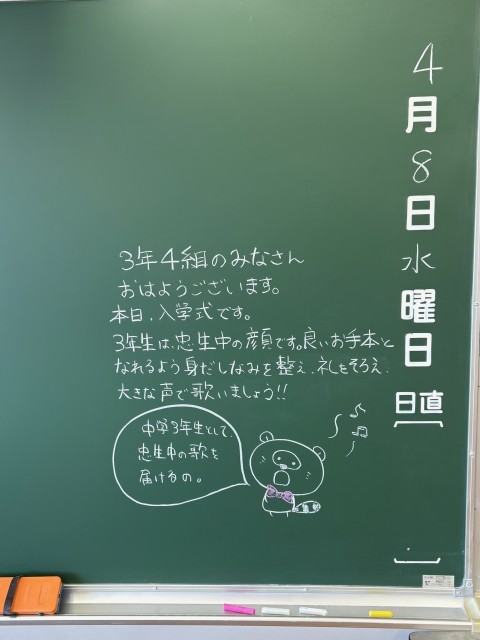 4月8日水曜日
日直
3年4組のみなさん
おはようございます。
本日、入学式です。
3年生は、忠生中の顔です。良いお手本と
なれるよう身だしなみを整え、礼をそろえ、
大きな声で歌いましょう!!
中学3年生として、
忠生中の歌を
届けるの。